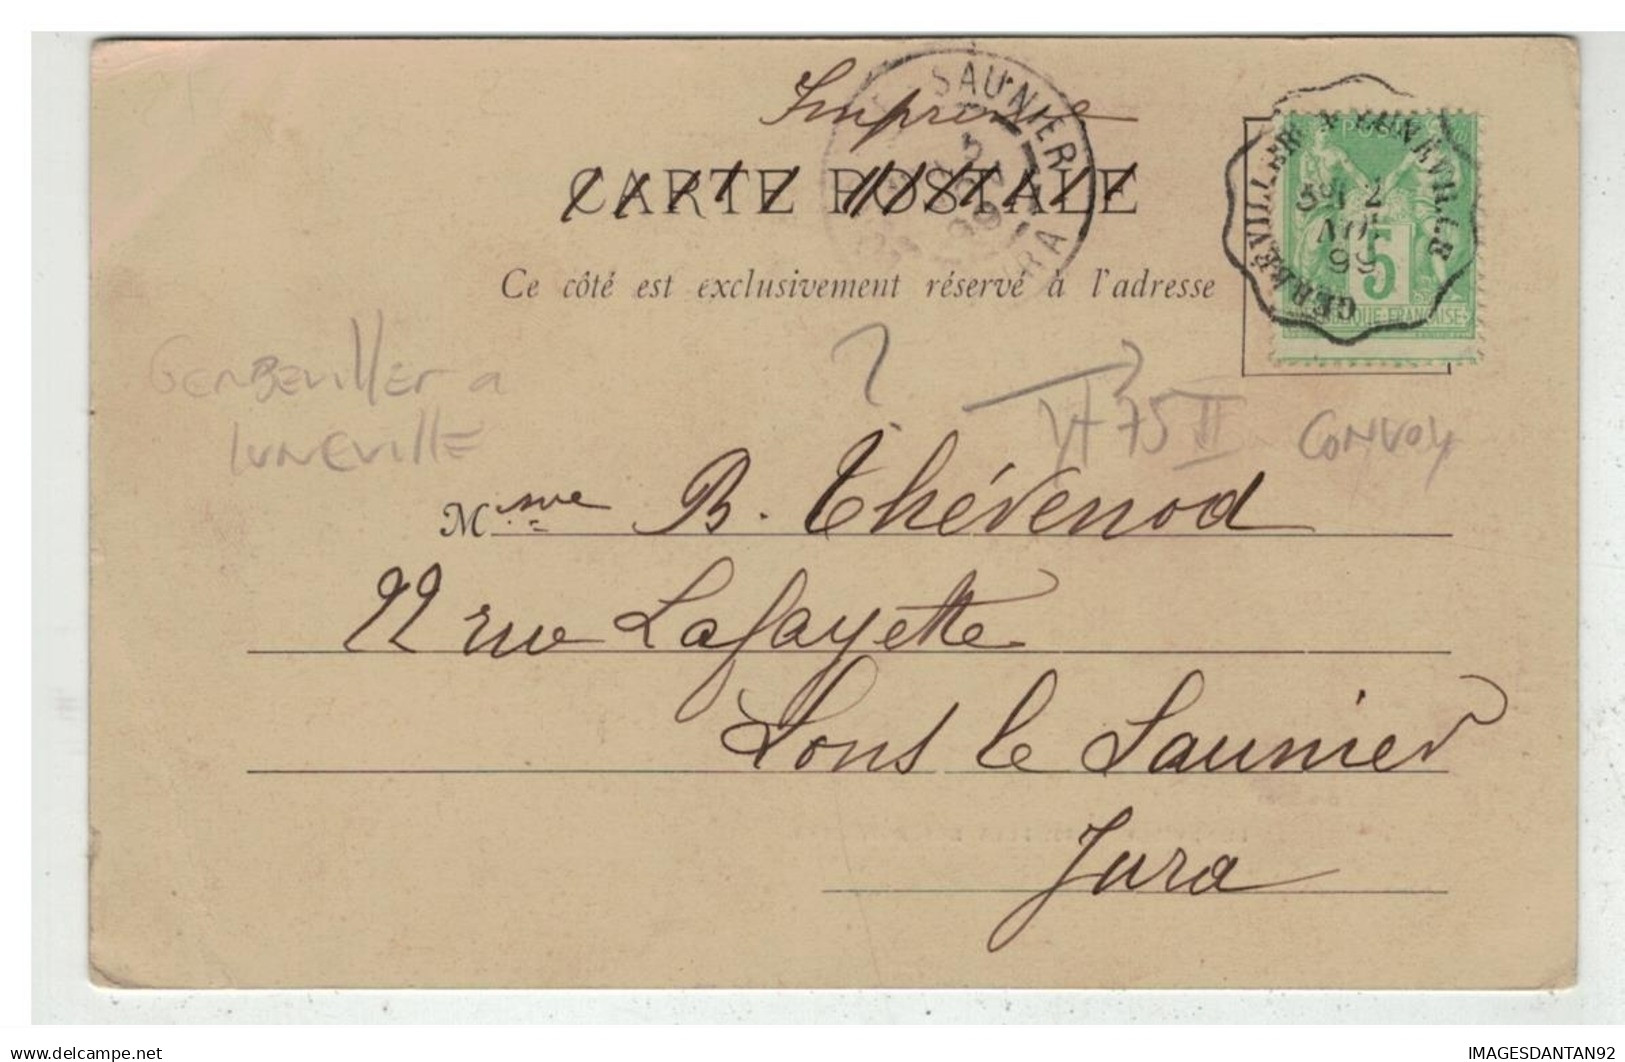 Imprimé
CARTE POSTALE
Ce côté est exclusivement réservé à l'adresse
SAUNIER
5
99
JURA
GERBÉVILLER À LUNÉVILLE
3E 2
NOV
99
5
RÉPUBLIQUE FRANÇAISE
GERBEVILLER a
LUNEVILLE
?
YT 75 II
CONVOY
Mme B. Thévenod
22 rue Lafayette
Lons le Saunier
Jura
delcampe.net
IMAGESDANTAN92